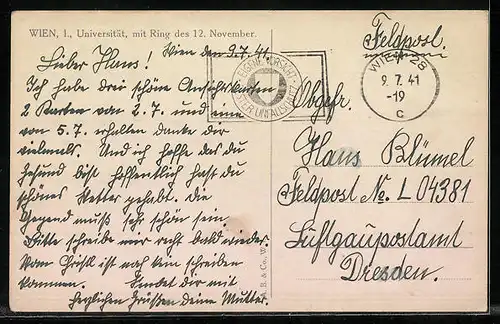 WIEN, I., Universität, mit Ring des 12. November.
Wien den 9.7.41
Lieber Hans!
Ich habe drei schöne Ansichtskarten
2 Karten vom 2.7. und eine
vom 5.7. erhalten danke dir
vielmals. Und ich hoffe das du
gesund bist hoffentlich hast du
schönes Wetter gehabt. Die
Gegend muß sehr schön sein.
Bitte schreibe mir recht bald wieder.
Vom Christl ist noch kein schreiben
kommen. Sendet dir mit
herzlichen Grüßen deine Mutter.
A. B. & Co. W.
EIGENE VORSICHT
DER UNFALLSCHUTZ
WIEN 28
9. 7. 41
-19
c
Feldpost.
Obgefr.
Hans Blümel
Feldpost No. L 04381
Luftgaupostamt
Dresden.